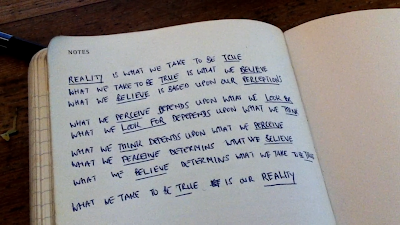 NOTES
REALITY IS WHAT WE TAKE TO BE TRUE
WHAT WE TAKE TO BE TRUE IS WHAT WE BELIEVE
WHAT WE BELIEVE IS BASED UPON OUR PERCEPTIONS
WHAT WE PERCEIVE DEPENDS UPON WHAT WE LOOK FOR
WHAT WE LOOK FOR DEPEPENDS UPON WHAT WE THINK
WHAT WE THINK DEPENDS UPON WHAT WE PERCEIVE
WHAT WE PERCEIVE DETERMINS WHAT WE BELIEVE
WHAT WE BELIEVE DETERMINS WHAT WE TAKE TO BE TRUE
WHAT WE TAKE TO BE TRUE IS OUR REALITY